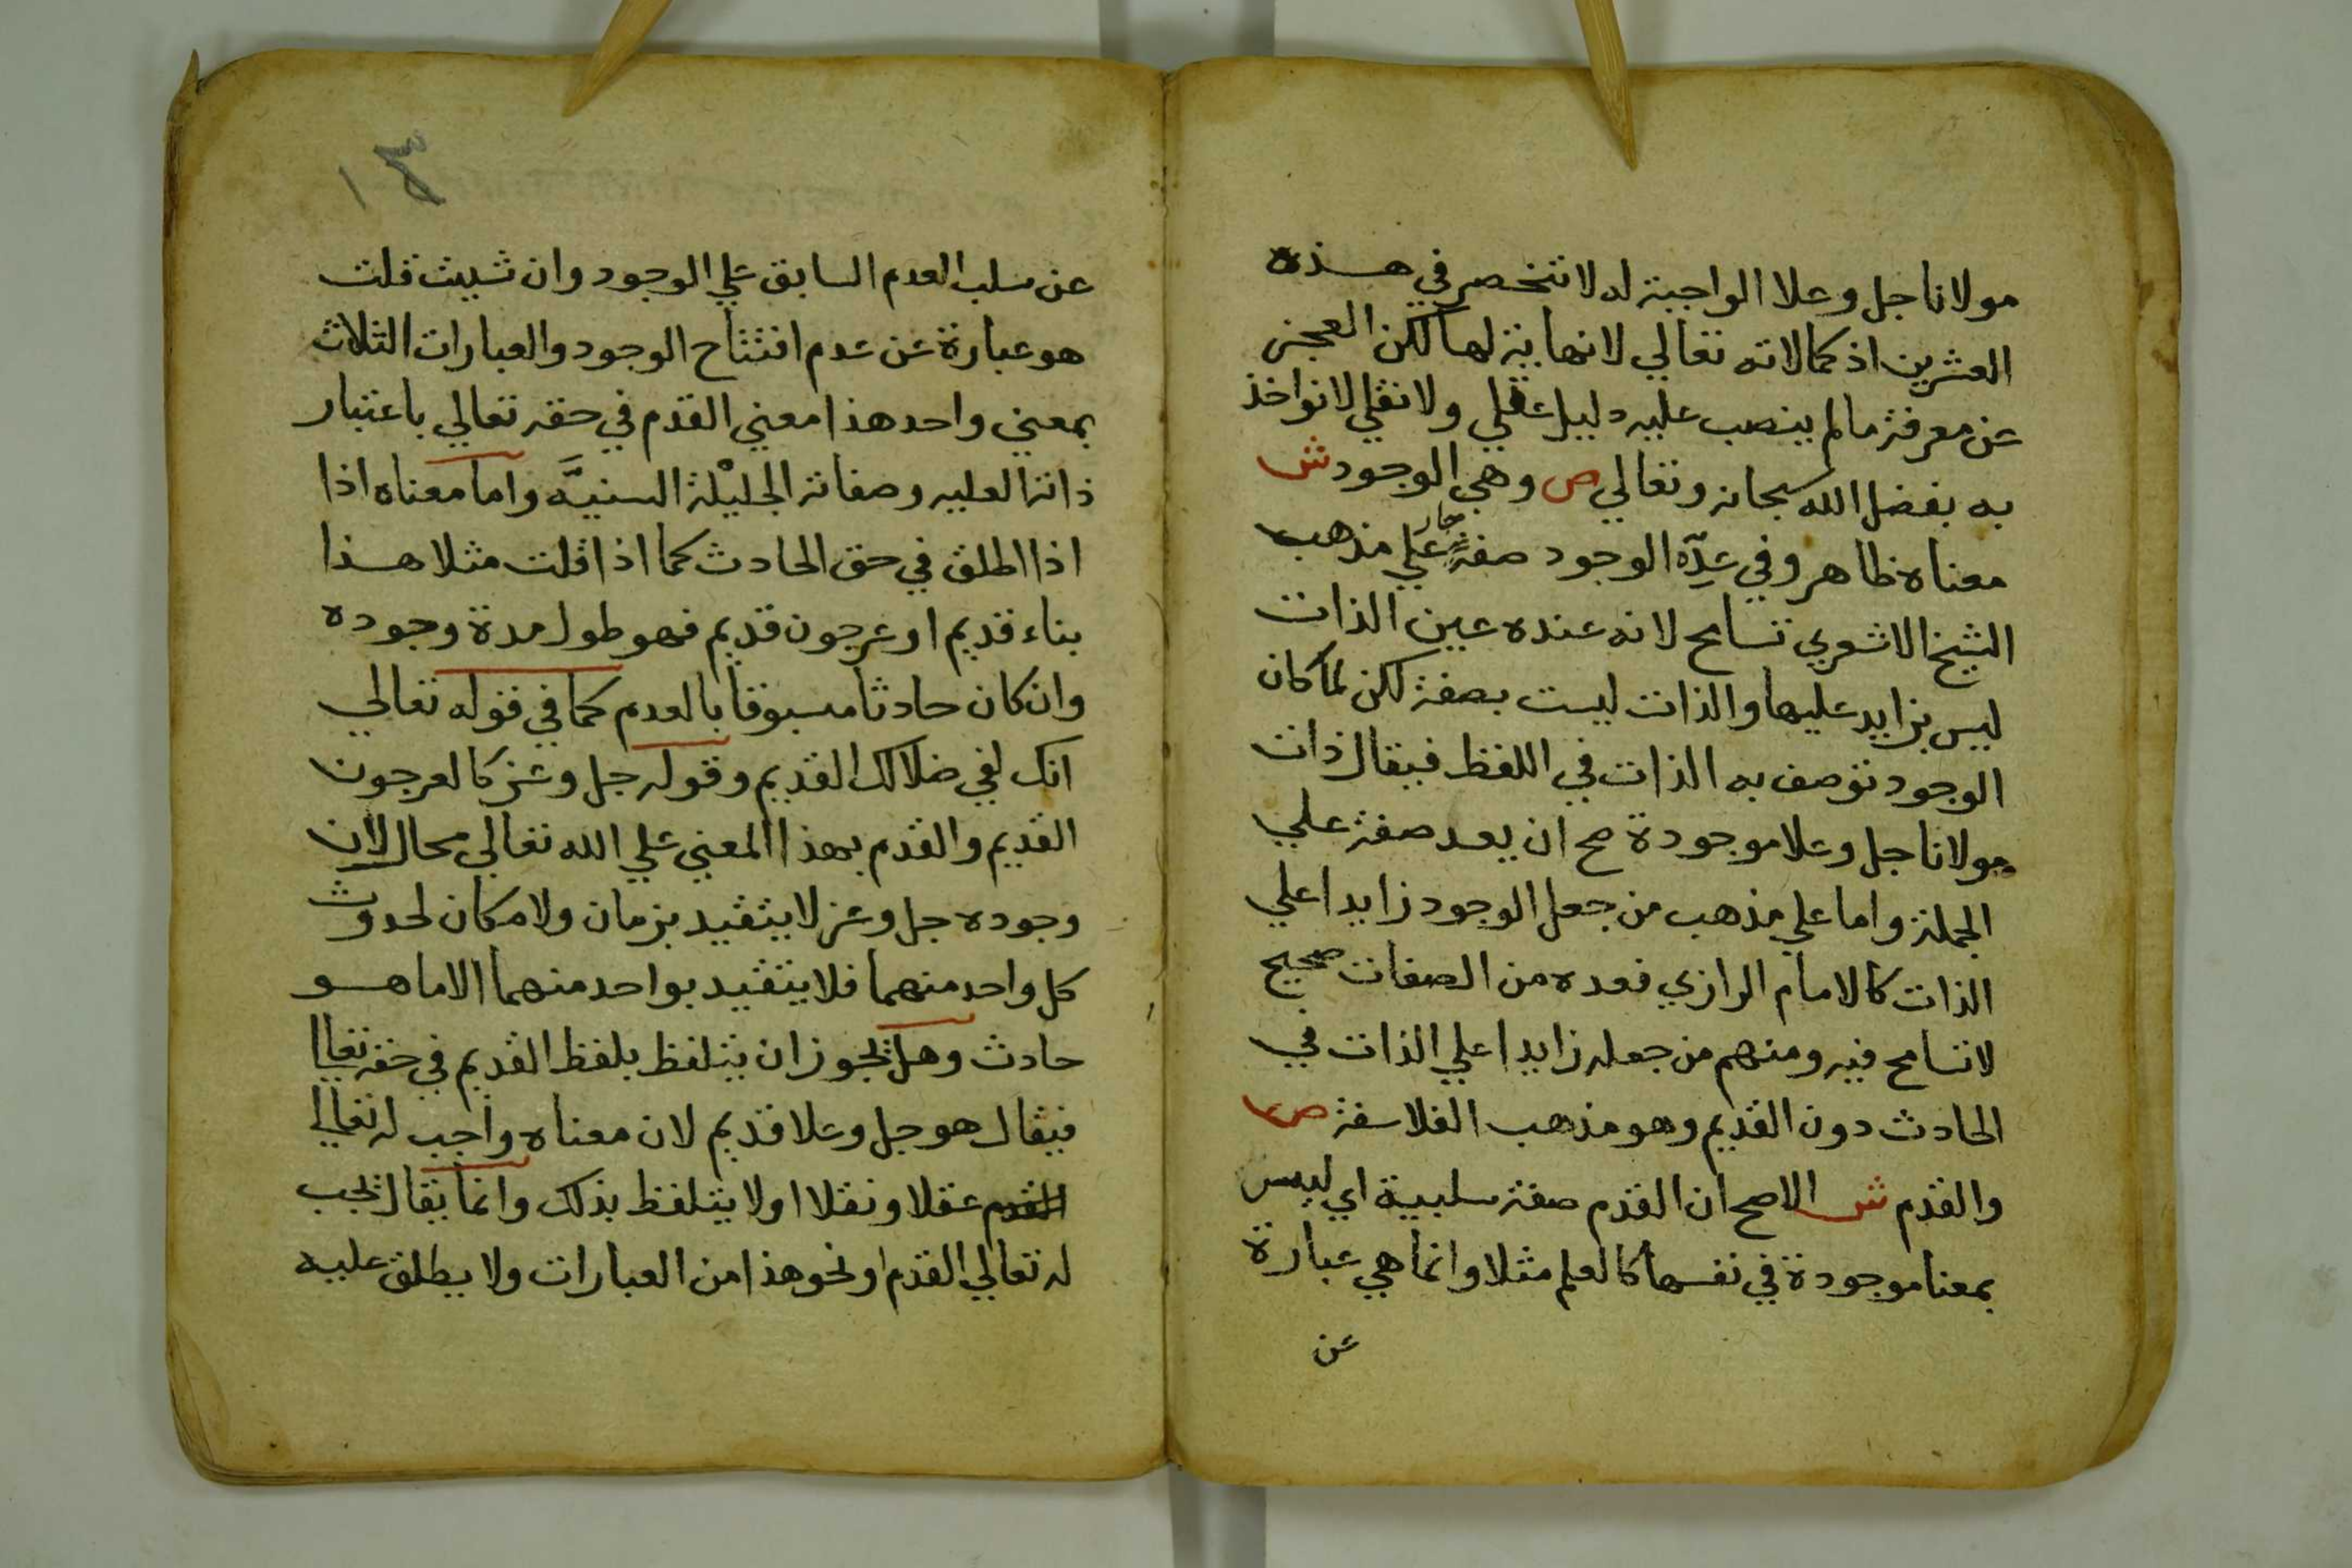 مولانا جل وعلا الواجبة له لا تنحصر في هذه
العشرين اذ كمالاته تعالي لا نهاية لها لكن العجز
عن معرفة مالم ينصب عليه دليل عقلي ولا نقلي لا نواخذ
به بفضل الله سبحانه وتعالي ص وهي الوجود ش
معناه ظاهر وفي عدّه الوجود صفة علي مذهب
الشيخ الاشعري تسامح لانه عنده عين الذات
ليس بزايد عليها والذات ليست بصفة لكن لما كان
الوجود توصف به الذات في اللفظ فيقال ذات
مولانا جل وعلا موجودة صح ان يعد صفة علي
الجملة واما علي مذهب من جعل الوجود زايدا علي
الذات كالامام الرازي فعده من الصفات صحيح
لا تسامح فيه ومنهم من جعله زايدا علي الذات في
الحادث دون القديم وهو مذهب الفلاسفة ص
والقدم ش الاصح ان القدم صفة سلبية اي ليس
بمعنا موجودة في نفسها كالعلم مثلا وانما هي عبارة
عن
١٣
عن سلب العدم السابق علي الوجود وان شيت قلت
هو عبارة عن عدم افتتاح الوجود والعبارات الثلاث
بمعني واحد هذا معني القدم في حقه تعالي باعتبار
ذاته العليه وصفاته الجليلة السنيَّه واما معناه اذا
اذا اطلق في حق الحادث كما اذا قلت مثلا هذا
بناء قديم او عرجون قديم فهو طول مدة وجوده
وان كان حادثا مسبوقا بالعدم كما في قوله تعالي
انك لفي ضلالك القديم وقوله جل وعز كالعرجون
القديم والقدم بهذا المعني علي الله تعالي محال لان
وجوده جل وعز لا يتقيد بزمان ولا مكان لحدوث
كل واحد منهما فلا يتقيد بواحد منهما الا ما هو
حادث وهل يجوز ان يتلفظ بلفظ القديم في حقه تعالي
فيقال هو جل وعلا قديم لان معناه واجب له تعالي
عقلا ونقلا اولا يتلفظ بذلك وانما يقال يجب
له تعالي القدم او نحو هذا من العبارات ولا يطلق عليه